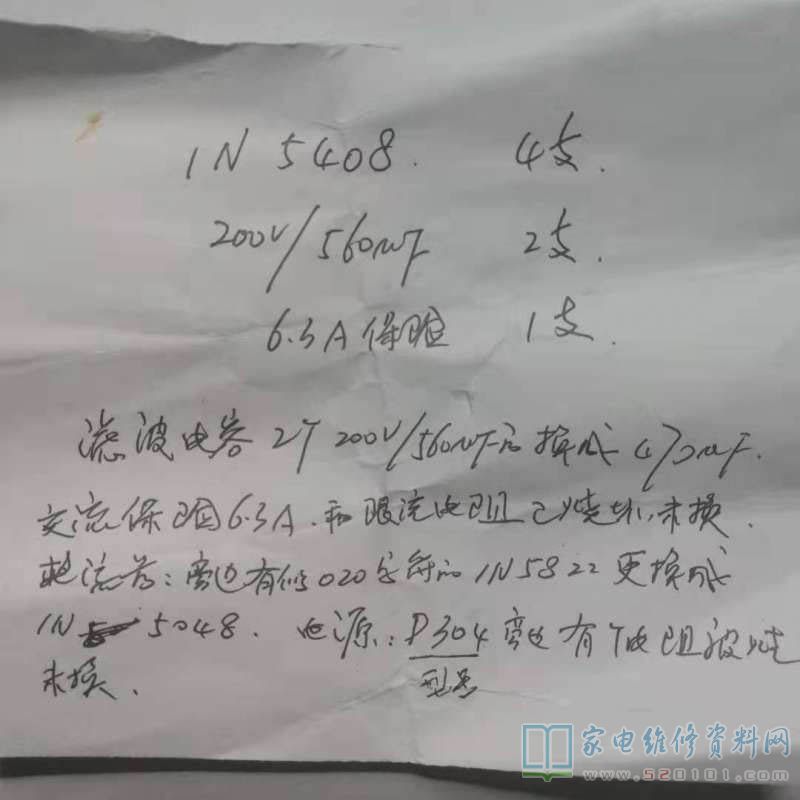 1N 5408. 4支.
200V/560uF 2支.
6.3A保险 1支.
滤波电容2个200V/560uF可换成470uF.
交流保险6.3A.和限流电阻已烧坏,未换.
整流管:旁边有似020字符的1N5822更换成
1N 5048. 电源:P304旁边有个电阻被烧
型号
未换.
家电维修资料网
www.520101.com